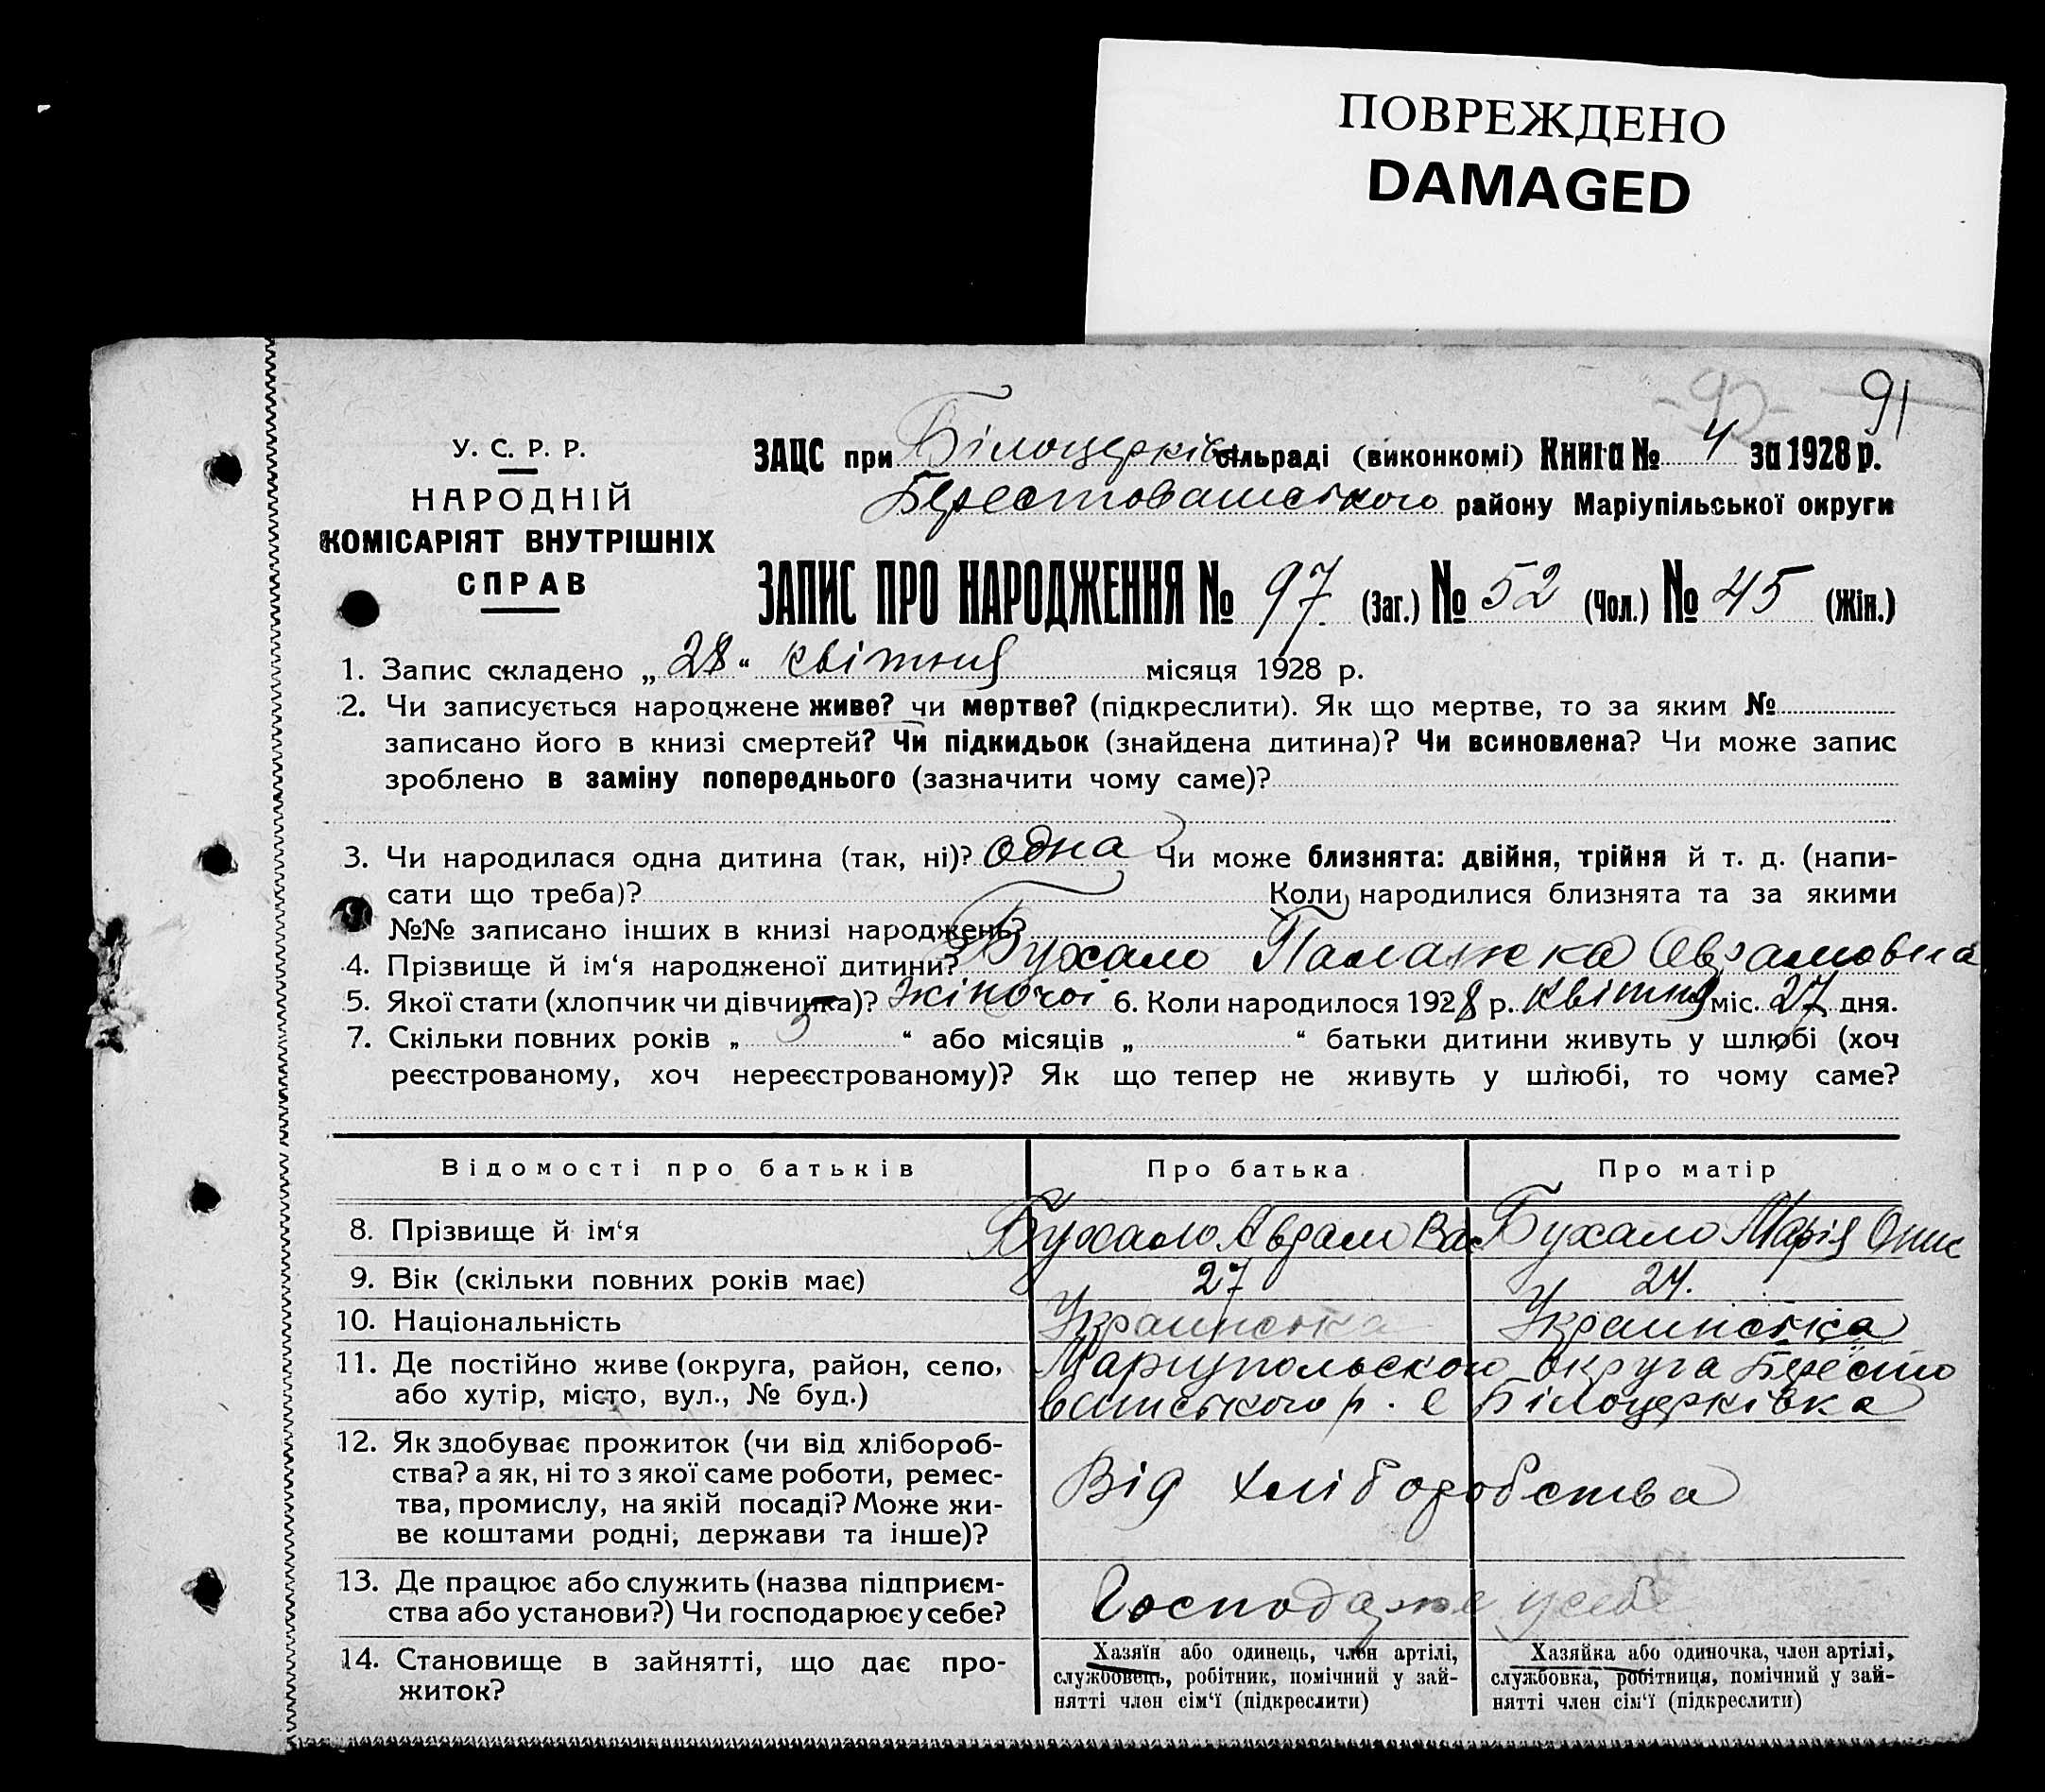 ПОВРЕЖДЕНО
DAMAGED
91
У. С. Р. Р.
НАРОДНІЙ
КОМІСАРІЯТ ВНУТРІШНІХ
СПРАВ
ЗАЦС при Білоцерків сільраді (виконкомі) Книга № 4 за 1928 р.
району Маріупільської округи
ЗАПИС ПРО НАРОДЖЕННЯ № 97 (Заг.) № 52 (Чол.) № 45 (Жін.)
1. Запис складено „ 28 “ квітня місяця 1928 р.
2. Чи записується народжене живе? чи мертве? (підкреслити). Як що мертве, то за яким №
записано його в книзі смертей? Чи підкидьок (знайдена дитина)? Чи всиновлена? Чи може запис
зроблено в заміну попереднього (зазначити чому саме)?
3. Чи народилася одна дитина (так, ні)? одна Чи може близнята: двійня, трійня й т. д. (напи-
сати що треба)? Коли народилися близнята та за якими
№№ записано інших в книзі народжень?
4. Прізвище й ім‘я народженої дитини? Бухало Палажка Аврамовна
5. Якої стати (хлопчик чи дівчинка)? жіночої 6. Коли народилося 1928 р. квітня міс. 27 дня.
7. Скільки повних років „ 5 “ або місяців „ “ батьки дитини живуть у шлюбі (хоч
реєстрованому, хоч нереєстрованому)? Як що тепер не живуть у шлюбі, то чому саме?
Відомості про батьків Про батька Про матір
8. Прізвище й ім‘я Бухало Аврам Вас Бухало Марія Онис
9. Вік (скільки повних років має) 27 24.
10. Національність Украинська Украинська
11. Де постійно живе (округа, район, село, Мариупольскою округа Бересто
або хутір, місто, вул., № буд.) ванського р. с Білоцерківка
12. Як здобуває прожиток (чи від хлібороб-
ства? а як, ні то з якої саме роботи, ремес-
тва, промислу, на якій посаді? Може жи-
ве коштами родні, держави та інше)?
Від хліборобства
13. Де працює або служить (назва підприєм-
ства або установи?) Чи господарює у себе?
Господарює у себе
14. Становище в зайнятті, що дає про-
житок?
Хазяїн або одинець, член артілі,
службовець, робітник, помічний у зай-
нятті член сім‘ї (підкреслити)
Хазяйка або одиночка, член артілі,
службовка, робітниця, помічний у зай-
нятті член сім‘ї (підкреслити)